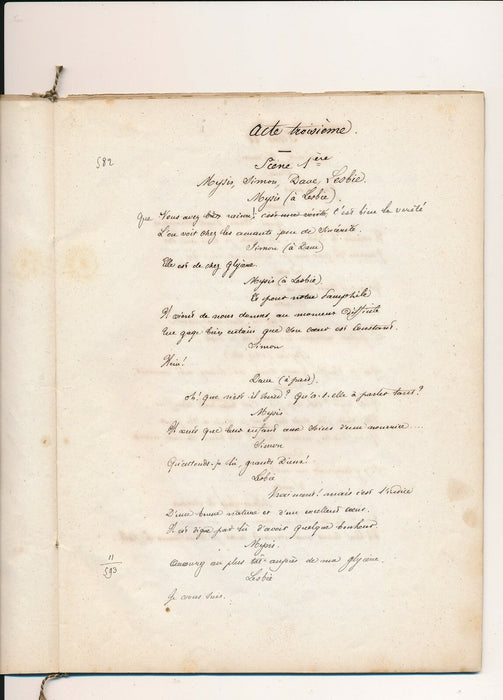 Acte troisième.
582
Scène 1ère
Mysis, Simon, Dave, Lesbie.
Mysis (à Lesbie).
Que Vous avez raison! c'est une vérité, c'est bien la vérité
L'on voit chez les amants peu de sincérité.
Simon (à Dave)
Elle est de chez glycère.
Mysis (à Lesbie)
Et pour notre Pamphile
Il vient de nous donner, au moment difficile
Un gage bien certain que son cœur est constant.
Simon
Hein!
Dave (à part).
Oh! que n'est-il sourd? Qu'a-t-elle à parler tant?
Mysis
Il veut que leur enfant aux soins d'une nourrice....
Simon
Qu'entends-je là, grands Dieux!
Lesbie
Vraiment! mais c'est l'indice
D'une bonne nature et d'un excellent cœur.
Il est digne par là d'avoir quelque bonheur.
Mysis.
11
593
au plus tôt auprès de ma glycère.
Lesbie
Je vous suis.